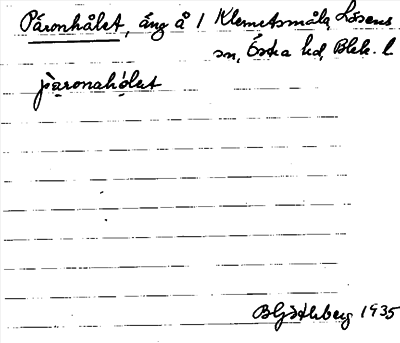 Päronhålet, äng å 1 Klemetsmåla, Lösens
sn, Östra hd, Blek. l.
päronahólet
1935